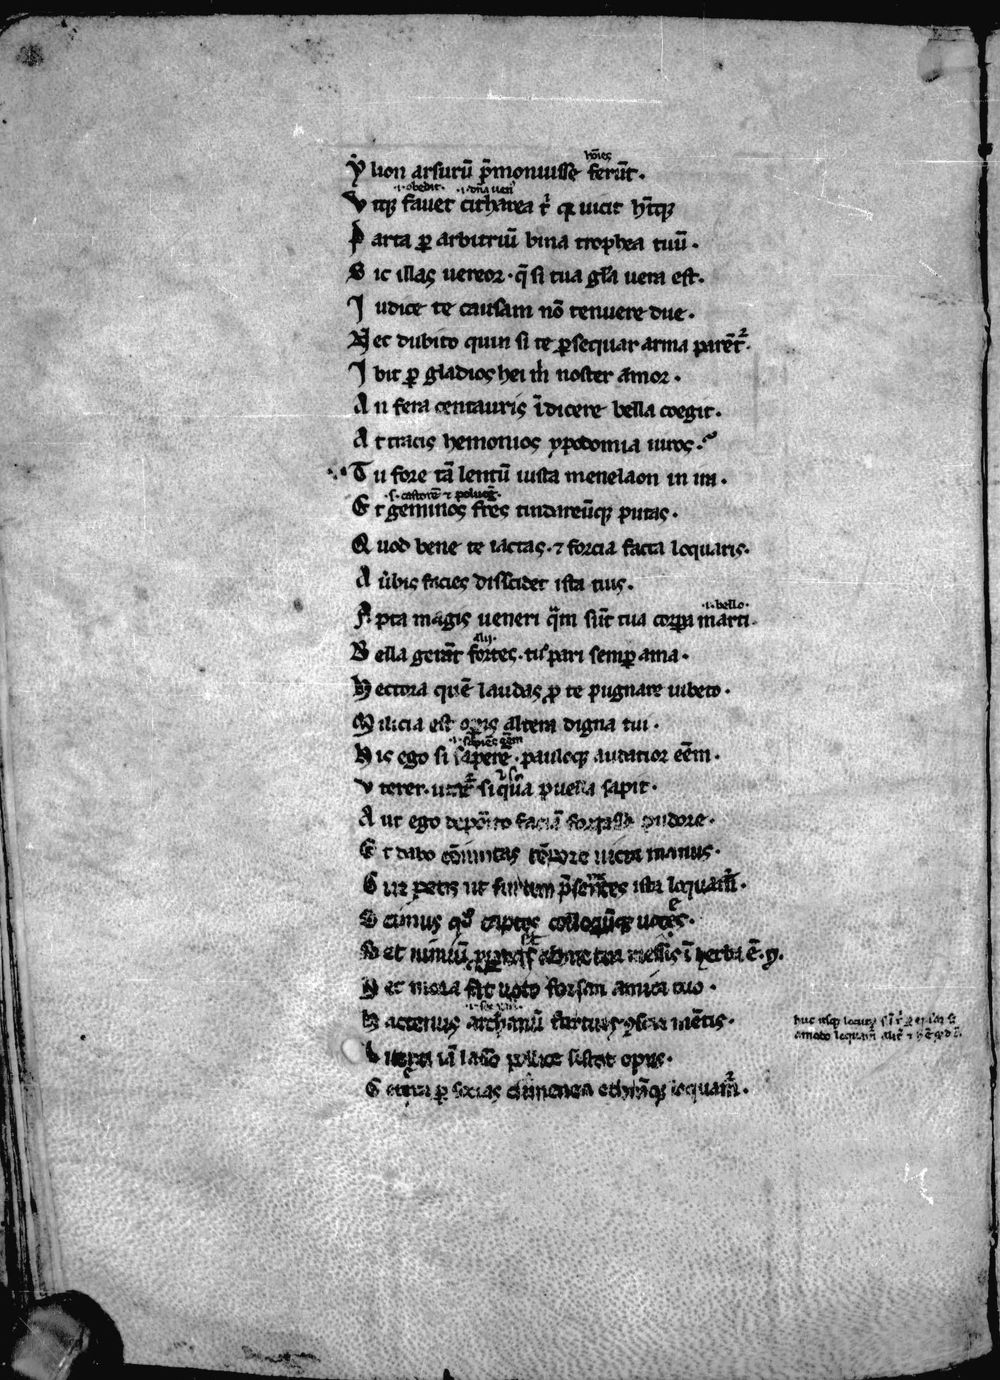 hoīes
Y lion arsurū p̄monuisse ferūt.
.i. obedit. .i. dn̄a uen̄
V tq; fauet citharea t' q̄ uicit h̄tq;
P arta ꝑ arbitriū bina trophea tuū.
S ic illas uereor. q̄ si tua gl̄a uera est.
I udice te causam nō tenuere due.
N ec dubito quin si te ꝑsequar arma parēt'.
I bit ꝑ gladios hei m̄ noster amor.
A n fera centauris īdicere bella coegit.
A tracis hemonios ypodomia uiros.
T u fore tā lentū iusta menelaon in ira.
.s. castorē ⁊ poluc̄
E t geminos fr̄es tindareūq; putas.
Q uod bene te iactas. ⁊ forcia facta loquaris.
A ūbis facies dissidet ista tuis.
.i. bello.
A pta magis ueneri q̄m sūt tua corꝑa marti.
alij.
B ella gerāt fortes. tu pari semꝑ ama.
H ectora quē laudas ꝓ te pugnare iubeto.
M ilicia est oꝑis altera digna tui.
.i. sapiēs eēm
H is ego si saperē. pauloq; audatior eēm.
V terer. utet' si qua puella sapit.
A ut ego deposito faciā fortasse pudore.
E t dabo cōiunctas tēpore uicta manus.
Q uz petis ut furtim p̄sentes ista loquam̄.
S cimus qd' captes colloquiūq; uoces.
S et nimiū ꝓperas adhuc tua messis ī herba ē.
H ec mora sit uoto forsan amica tuo.
H actenus archanū furtiue 9scia mētis.
L ittera iā lasso pollice sistat opus.
C etera ꝑ socias climenen ethrāq; loquam̄.
huc usq;